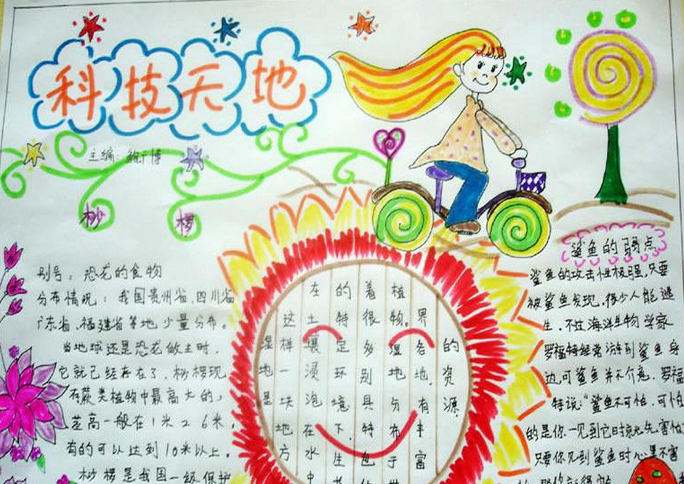 科技天地
主编:
桫椤
别号：恐龙的食物
分布情况：我国贵州省、四川省
广东省、福建省等地少量分布。
当地球还是恐龙做主时，
它就已经存在了，桫椤现
存蕨类植物中最高大的，
茎高一般在1米26米，
有的可以达到10米以上。
桫椤是我国一级保护
湿地是
这样一块地方
在土壤浸泡在水中
的特定环境下，生
着很多别具特色的
植物。湿地分布于世
界各地，有丰富
的资源
鲨鱼的弱点
鲨鱼的攻击性极强，只要
被鲨鱼发现，很少人能逃
生，不过海洋生物学家
罗福特经常游到鲨鱼身
边，可鲨鱼并不介意。罗福
特说：“鲨鱼不可怕，可怕
的是你一见到它时就先害怕
只要你见到鲨鱼时心里不害